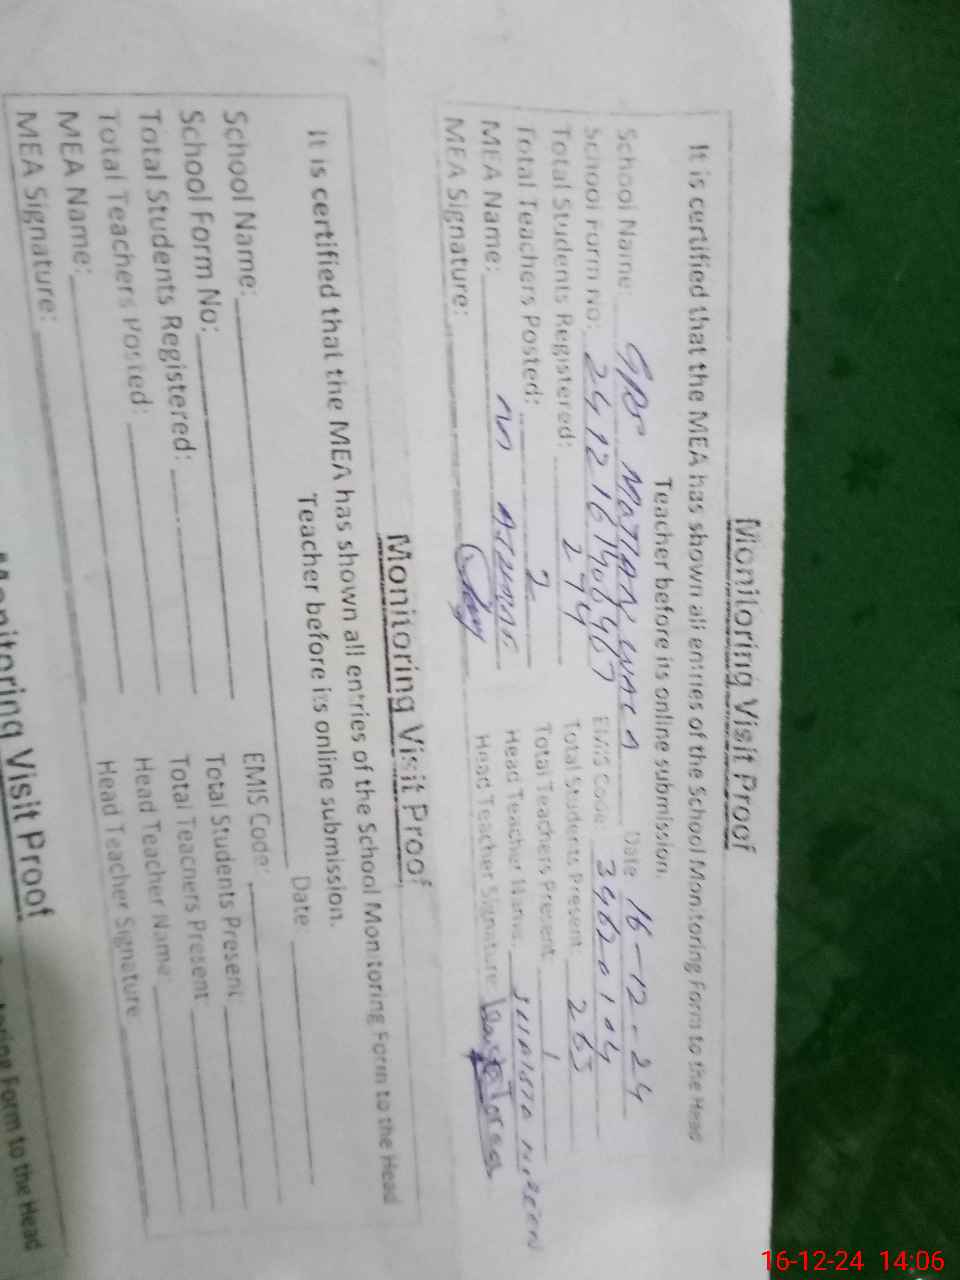 Monitoring Visit Proof
It is certified that the MEA has shown all entries of the School Monitoring Form to the Head
Teacher before its online submission.
School Name: GPS Date 16-12-24
School Form No: EMIS Code: 34620104
Total Students Registered: 274 Total Students Present: 265
Total Teachers Posted: 2 Total Teachers Present 1
MEA Name: Head Teacher Name:
MEA Signature: Head Teacher Signature
Monitoring Visit Proof
It is certified that the MEA has shown all entries of the School Monitoring Form to the Head
Teacher before its online submission.
School Name: Date
School Form No: EMIS Code:
Total Students Registered: Total Students Present
Total Teachers Posted: Total Teachers Present
MEA Name: Head Teacher Name
MEA Signature: Head Teacher Signature
Monitoring Visit Proof
Form to the Head
16-12-24 14:06